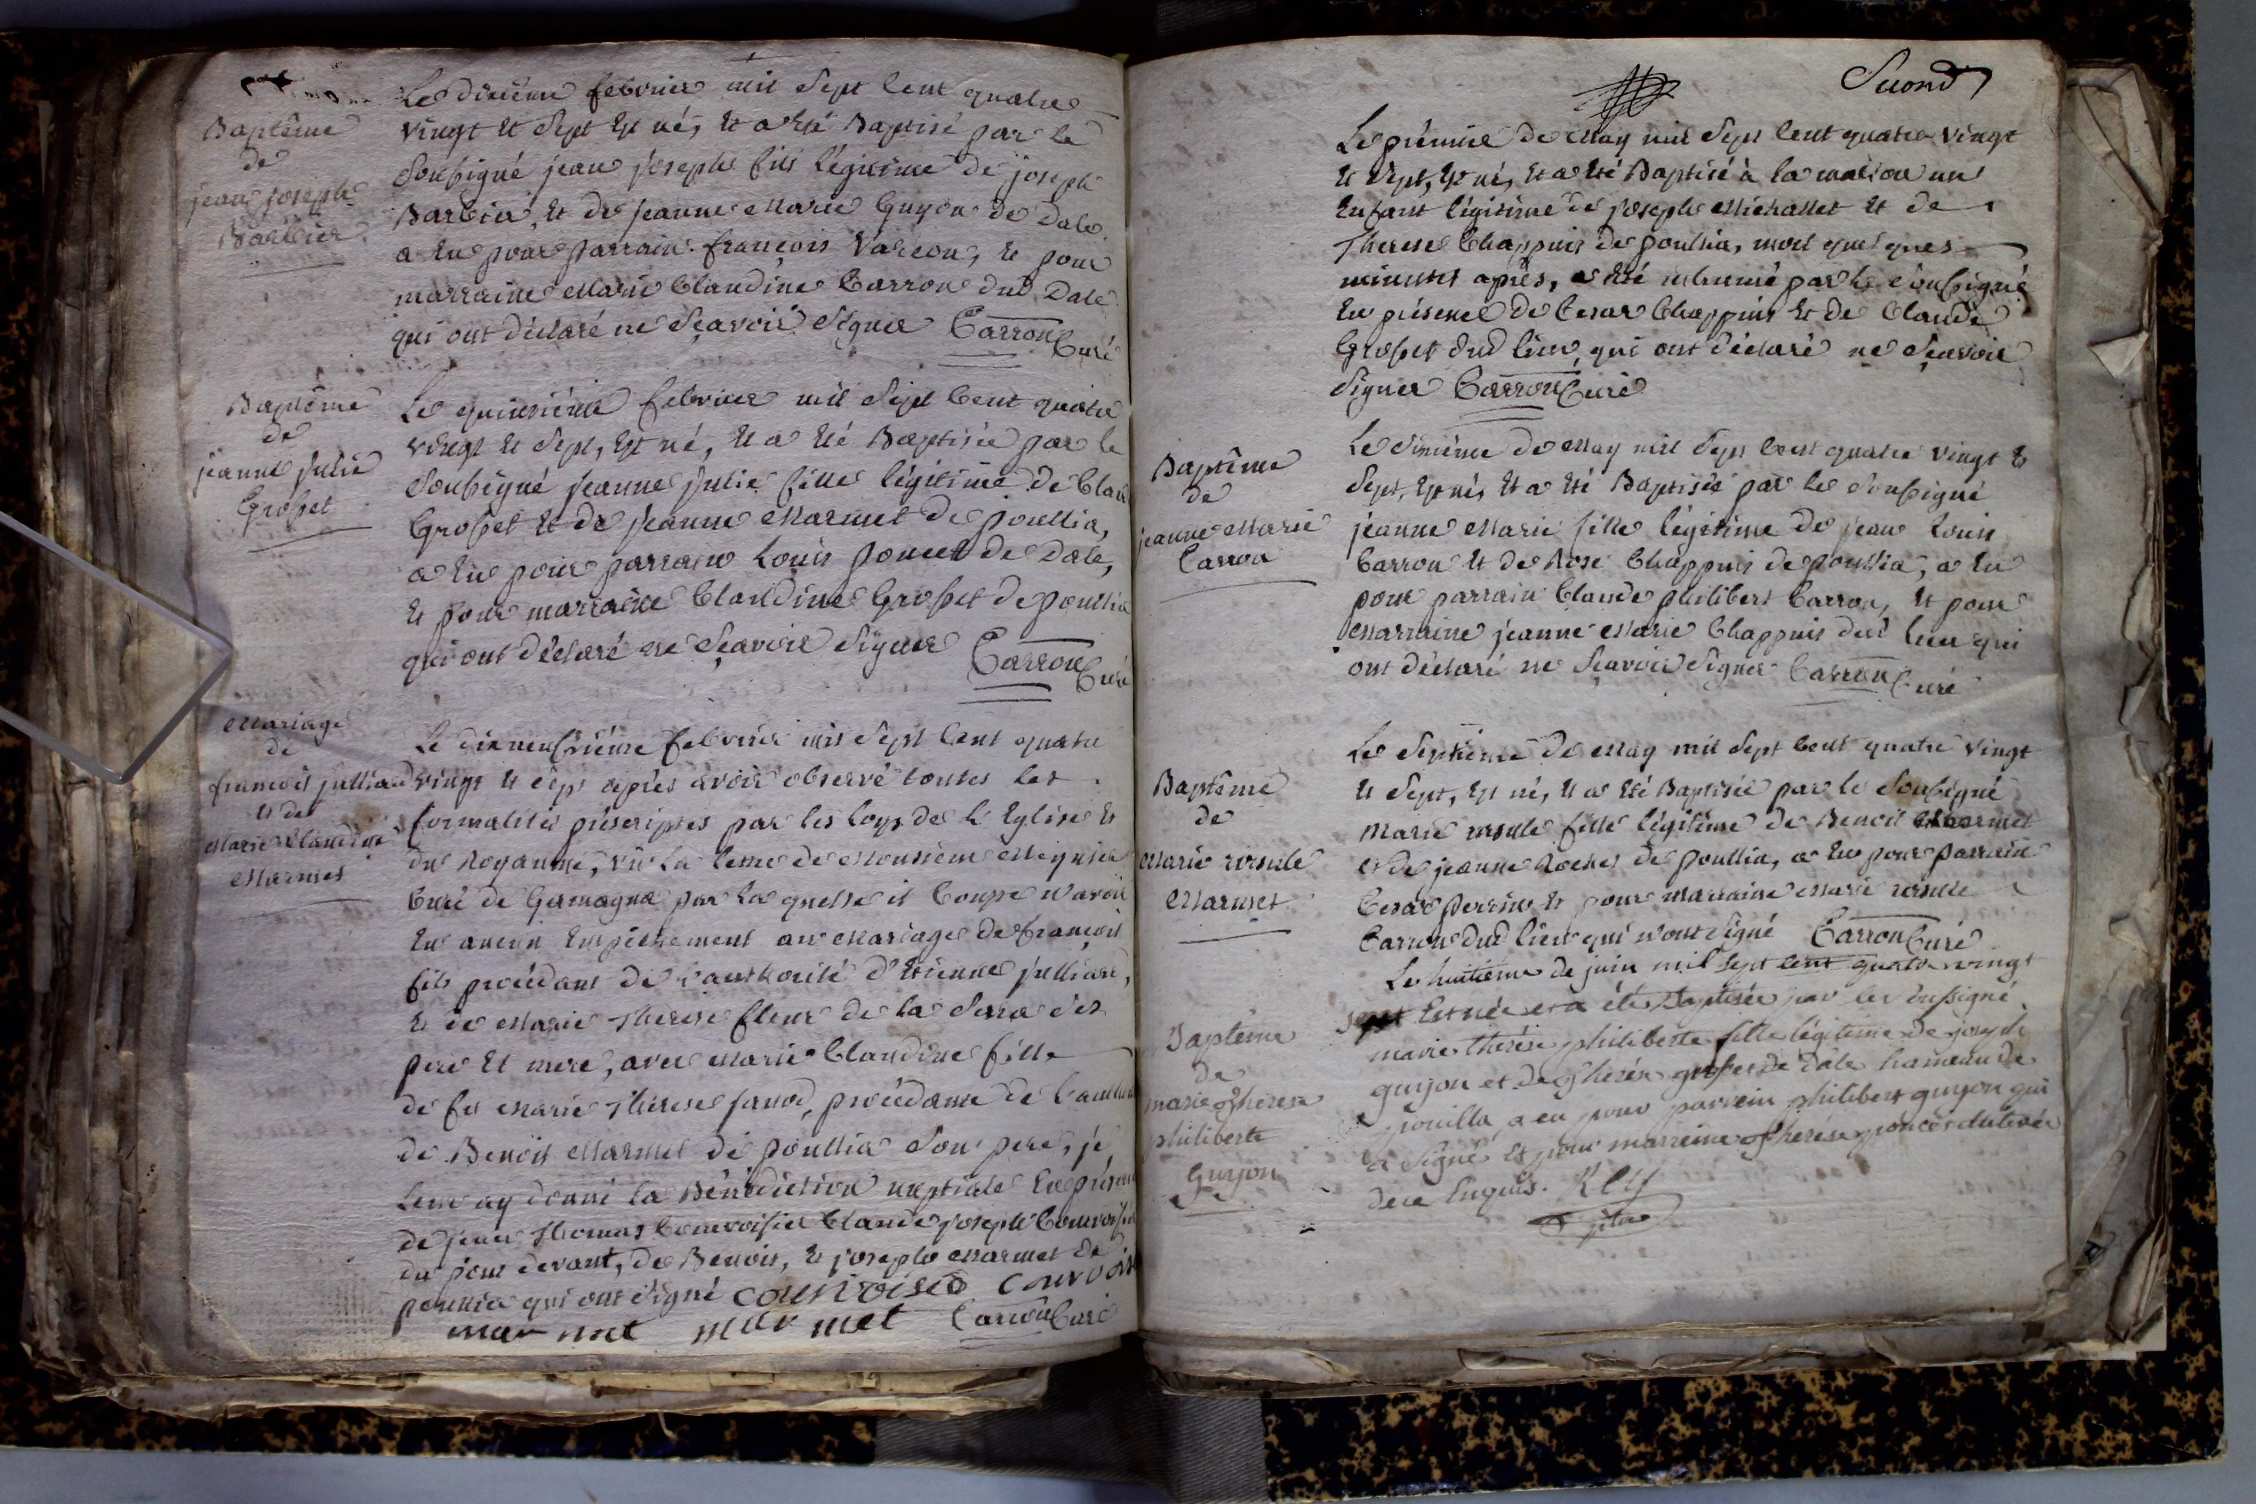 Baptême
de
jean joseph
Barbier
Le dixième febvrier mil Sept Cent quatre
vingt et Sept Est né, Et a Eté Baptisé par le
Soussigné jean joseph fils légitime de joseph
Barbier, Et de jeanne Marie Guyon de Dale
a Eu pour parrain françois Vareon, Et pour
marraine Marie Claudine Carron dud Dale
qui ont déclaré ne Sçavoir Signer Carron Curé
Baptême
de
jeanne julie
Grosset
Le quinzième febvrier mil Sept Cent quatre
vingt Et Sept, Est né, Et a Eté Baptisée par le
Soussigné jeanne julie fille légitime de Clau
Grosset Et de jeanne Marmet de poullia,
a Eu pour parrain Louis poncet de Dale,
Et pour marraine Claudine Grosset de poullia
qui ont déclaré ne Sçavoir Signer Carron Curé
Mariage
de
françois jullian
Et de
Marie Claudine
Marmet
Le dixneufvième febvrier mil Sept Cent quatre
vingt Et Sept après avoir observé toutes les
formalités préscriptes par les loys de l'Eglise Et
du Royaume, vû la lettre de Monsieur
Curé de par la quelle il Conste n'avoir
Eu aucun Empéchement au Mariage de françois
fils procédant de l'authorité d'Etienne jullian,
Et de Marie Therese fleur de la Serra Ses
pere Et mere, avec Marie Claudine fille
de fû Marie Therese janod, procédante de l'autho
de Benoît Marmet de poullia Son pere, je
Leur ay donné la Bénédiction nuptiale En présence
de jean Thomas Courvoisier Claude joseph Courvoisier
du pont devant, de Benoit, Et joseph Marmet de
poullia qui ont Signé courvoisier courvoisi
marmet marmet Carron Curé
Second
Le prémier de May mil Sept Cent quatre vingt
Et Sept, Est né, Et a Eté Baptisé à la maison un
Enfant légitime de joseph Michallet Et de
Therese Chappuis de poullia, mort quelques
minutes après, a Eté inhumé par le Soussigné
En présence de Cesar Chappuis Et de Claude
Grosset dud lieu, qui ont déclaré ne Sçavoir
Signer Carron Curé
Baptême
de
jeanne Marie
Carron
Le Sixième de May mil Sept Cent quatre vingt Et
Sept, Est né, Et a Eté Baptisée par le Soussigné
jeanne Marie fille légitime de jean Louis
Carron Et de Rose Chappuis de poullia, a Eu
pour parrain Claude philibert Carron, Et pour
Marraine jeanne Marie Chappuis dud lieu qui
ont déclaré ne Sçavoir Signer Carron Curé
Baptême
de
Marie ursule
Marmet
Le Septième de May mil Sept Cent quatre vingt
Et Sept, Est né, Et a Eté Baptisée par le Soussigné
Marie ursule fille légitime de Benoit Marmet
Et de jeanne Roches de poullia, a Eu pour parrain
Cesar perrin Et pour Marraine Marie ursule
Carron dud lieu qui n'ont Signé Carron Curé
Baptême
de
marie therese
philiberte
Guyon
Le huitieme de juin mil sept cent quatre vingt
sept Est née et a été Baptisée par le soussigné
marie thérése philiberte fille légitime de joseph
guyon et de thérése grosset de Dale hameau de
pouilla a eu pour parrein philibert guyon qui
a Signé Et pour marreine therese poncet
de ce Enquis. Rey